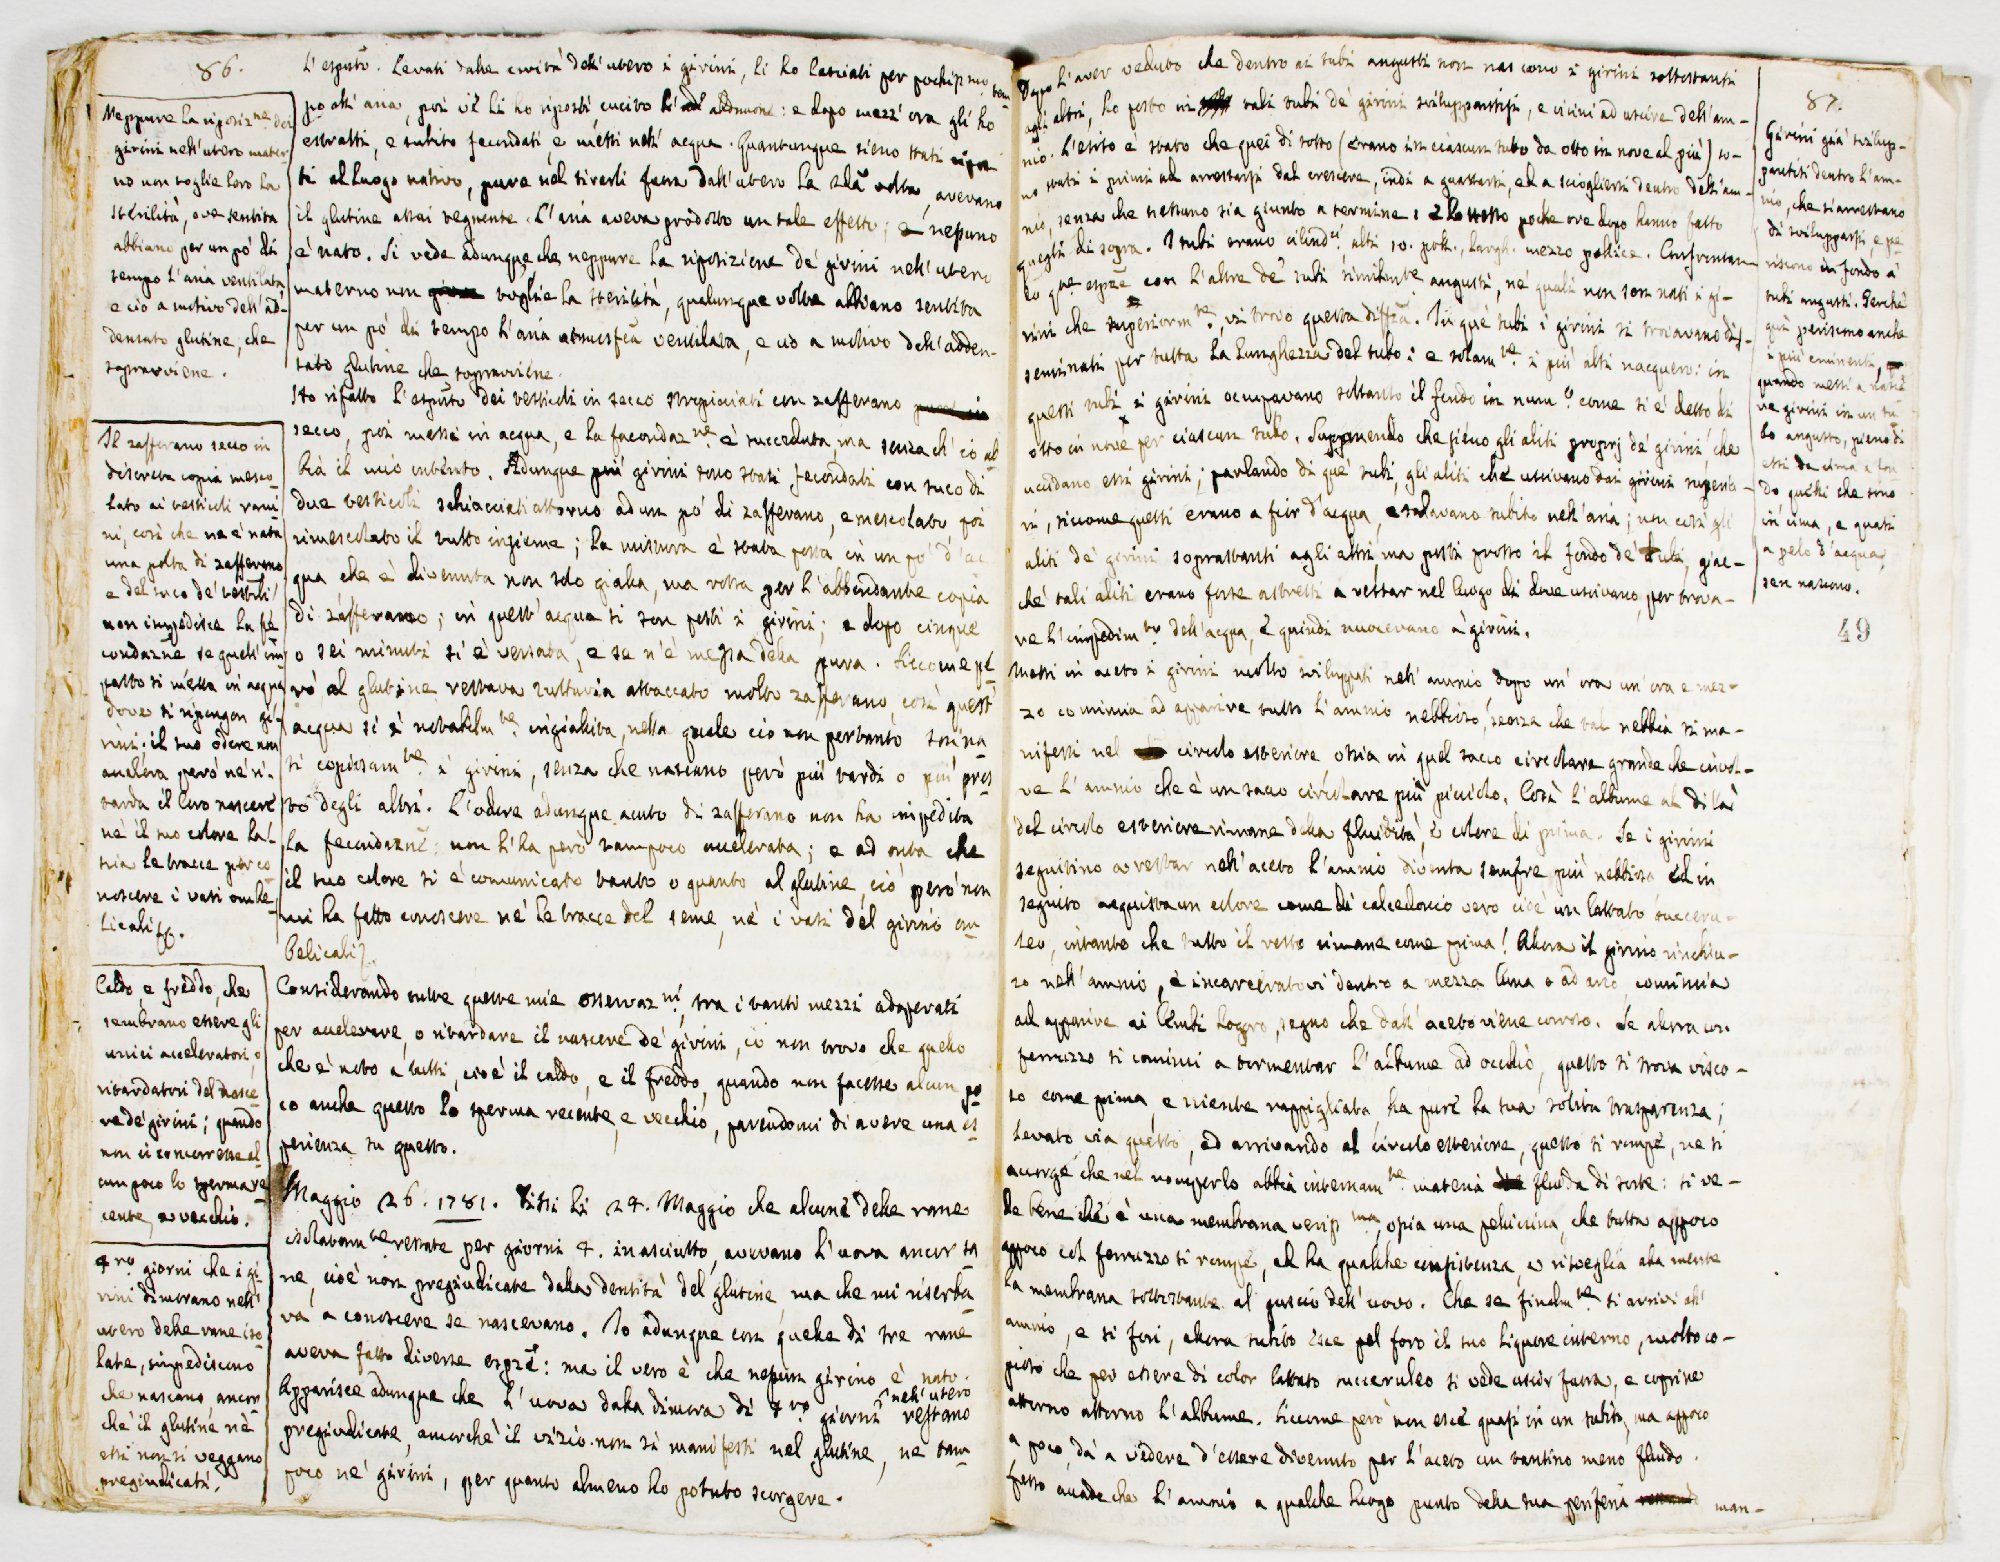 86.
Neppure la riposiz.ne dei
girini nell'utero mater
no non toglie loro la
sterilità, ove sentita
abbiano per un pò di
tempo l'aria ventilata
e ciò a motivo dell'ad-
densato glutine, che
sopravviene.
Il zafferano secco in
discreta copia mesco-
lato ai testicoli rani
ni, così che ne è nata
una polta di zafferano
e del suco de' testicoli
non impedisce la fe
condazne se quell'im
pasto si metta in acqua
dove si ripongon gi-
rini: il suo odore non
accelera però nè ri-
tarda il loro nascere
nè il suo colore la-
scia le tracce per co
noscere i vasi ombe
licali &.
Caldo, e freddo, che
sembrano essere gli
unici acceleratori, o
ritardatori del nasce
re de' girini; quando
non ci concorresse al
cun poco lo sperma re
cente, o vecchio.
4.ro giorni che i gi
rini dimorano nell'
utero delle rane iso
late, impediscono
che nascano ancor
chè il glutine nè
essi non si veggano
pregiudicati.
L'espto. Levati dalle cavità dell'utero i girini, li ho lasciati per pochiss.mo tem
po all'aria, poi vi li ho riposti, cucito l' addomone: e dopo mezz'ora gli ho
estratti, e subito fecondati, e messi nell'acqua. Quantunque sieno stati ripos
ti al luogo nativo, pure nel tirarli fuora dall'utero la 2da volta, avevano
il glutine assai tegnente. L'aria aveva prodotto un tale effetto; e nessuno
è nato. Si vede adunque che neppure la riposizione de' girini nell'utero
materno non toglie la sterilità, qualunque volta abbiano sentita
per un pò di tempo l'aria atmosfca ventilata, e ciò a motivo dell'adden-
sato glutine che sopravviene.
Ho rifatto l'espto dei testicoli in secco stropicciati con zafferano
secco, poi messi in acqua, e la fecondaz.ne è succeduta, ma senza ch'io ab
bia il mio intento. Adunque più girini sono stati fecondati con suco di
due testicoli schiacciati attorno ad un pò di zafferano, e mescolato poi
rimescolato il tutto insieme; la mistura è stata posta in un pò d'ac
qua che è divenuta non solo gialla, ma rossa per l'abbondante copia
di zafferano; in quest'acqua si son posti i girini; e dopo cinque
o sei minuti si è versata, e se n'è messa della pura. Siccome pe
rò al glutine restava tuttavia attaccato molto zafferano così quest'
acqua si è notabilm.te ingiallita, nella quale ciò non pertanto son na
ti copiosam.te i girini, senza che nascano però più tardi o più pres
to degli altri. L'odore adunque acuto di zafferano non ha impedita
la fecondazne: non l'ha però tampoco accelerata; e ad onta che
il suo colore si è comunicato tanto o quanto al glutine, ciò però non
mi ha fatto conoscere nè le tracce del seme, nè i vasi del girino om
belicali &.
Considerando tutte queste mie osservaz.ni, tra i tanti mezzi adoperati
per accelerare, o ritardare il nascere de' girini, io non trovo che quello
che è noto a tutti, cioè il caldo, e il freddo, quando non facesse alcun po
co anche questo lo sperma recente, e vecchio, parendomi di avere una es
perienza su questo.
Maggio 26. 1781. Dissi li 24. Maggio che alcune delle rane
isolatam.te restate per giorni 4. in asciutto, avevano l'uova ancor sa
ne, cioè non pregiudicate dalla densità del glutine, ma che mi riserba
va a conoscere se nascevano. Io adunque con quelle di tre rane
aveva fatto diverse espze: ma il vero è che nessun girino è nato.
Apparisce adunque che l'uova dalla dimora di 4.ro giorni nell'utero restano
pregiudicate, ancorchè il vizio non si manifesti nel glutine, nè tam
poco nè girini, per quanto almeno ho potuto scorgere.
87.
Girini già svilup-
patisi dentro l'am-
nio, che si arrestano
di svilupparsi, e pe
riscono in fondo a'
tubi angusti. Perchè
quì periscono anche
i più eminenti,
quando messi a nasce
re girini in un tu
bo angusto, pieno di
essi da cima a fon
do quelli che sono
in cima, e quasi
a pelo d'acqua,
sen nascono.
49
Dopo l'aver veduto che dentro ai tubi angusti non nascono i girini sottostanti
agli altri, ho posto in tali tubi de' girini sviluppantisi, e vicini ad uscire dell'am-
nio. L'esito è stato che quei di sotto (erano in ciascun tubo da otto in nove al più) so-
no stati i primi ad arrestarsi dal crescere, indi a guastarsi, ed a sciogliersi dentro dell'am-
nio, senza che nessuno sia giunto a termine: e lo stesso poche ore dopo hanno fatto
quegli di sopra. I tubi erano cilind.ci alti 10. poll., largh. mezzo pollice. Confrontan
do q.ta espze con l'altre de' tubi similm.te angusti, nè quali non son nati i gi-
rini che superiorm.te, vi trovo questa diffza. In què tubi i girini si trovavano dis-
seminati per tutta la lunghezza del tubo: e solam.te i più alti nacquero: in
questi tubi i girini occupavano soltanto il fondo in num.o come si è detto di
otto in nove per ciascun tubo. Supponendo che sieno gli aliti proprj de' girini, che
uccidano essi girini; parlando di què tubi, gli aliti che uscivano dai girini superio-
ri, siccome questi erano a fior d'acqua, esalavano subito nell'aria; non così gli
aliti de' girini soprastanti agli altri, ma posti presso il fondo de' tubi, giac-
chè tali aliti erano forse astretti a restar nel luogo di dove uscivano, per trova-
re l'impedim.to dell'acqua, e quindi nuocevano à girini.
Messi in aceto i girini molto sviluppati nell'amnio dopo un'ora un'ora e mez-
zo comincia ad apparire tutto l'amnio nebbioso, senza che tal nebbia si ma-
nifesti nel circolo esteriore ossia in quel sacco circolare grande che invol-
ve l'amnio che è un sacco circolare più picciolo. Così l'albume al di là
del circolo esteriore rimane della fluidità, e colore di prima. Se i girini
seguitino a restar nell'aceto l'amnio diventa sempre più nebbioso ed in
seguito acquista un colore come di calcedonio vero cioè un lattato succeru-
leo, intanto che tutto il resto rimane come prima! Allora il girino rinchiu-
so nell'amnio, è incarceratovi dentro a mezza luna o ad arco, comincia
ad apparire ai lembi logoro, segno che dall'aceto viene corroso. Se allora con
ferruzzo si cominci a tormentar l'albume ad occhio, questo si trova visco-
so come prima, e niente rappigliato, ha pure la sua solita trasparenza;
levato via questo, ed arrivando al circolo esteriore, questo si rompe, ne si
accorge che nel romperlo abbia internam.te materia fluida di sorte: si ve-
de bene che è una membrana veriss.ma, ossia una pellicina, che tutta appoco
appoco col ferruzzo si rompe, ed ha qualche consistenza, e risveglia alla mente
la membrana sottostante al guscio dell'uovo. Che se finalm.te si arrivi all'
amnio, e si fori, allora subito esce pel foro il suo liquore interno, molto co-
pioso che per essere di color lattato succeruleo si vede uscir fuora, e coprire
attorno attorno l'albume. Siccome però non esce quasi in un subito, ma appoco
a poco, dà a vedere d'essere divenuto per l'aceto un tantino meno fluido.
Spesso accade che l'amnio a qualche luogo punto della sua periferia man-